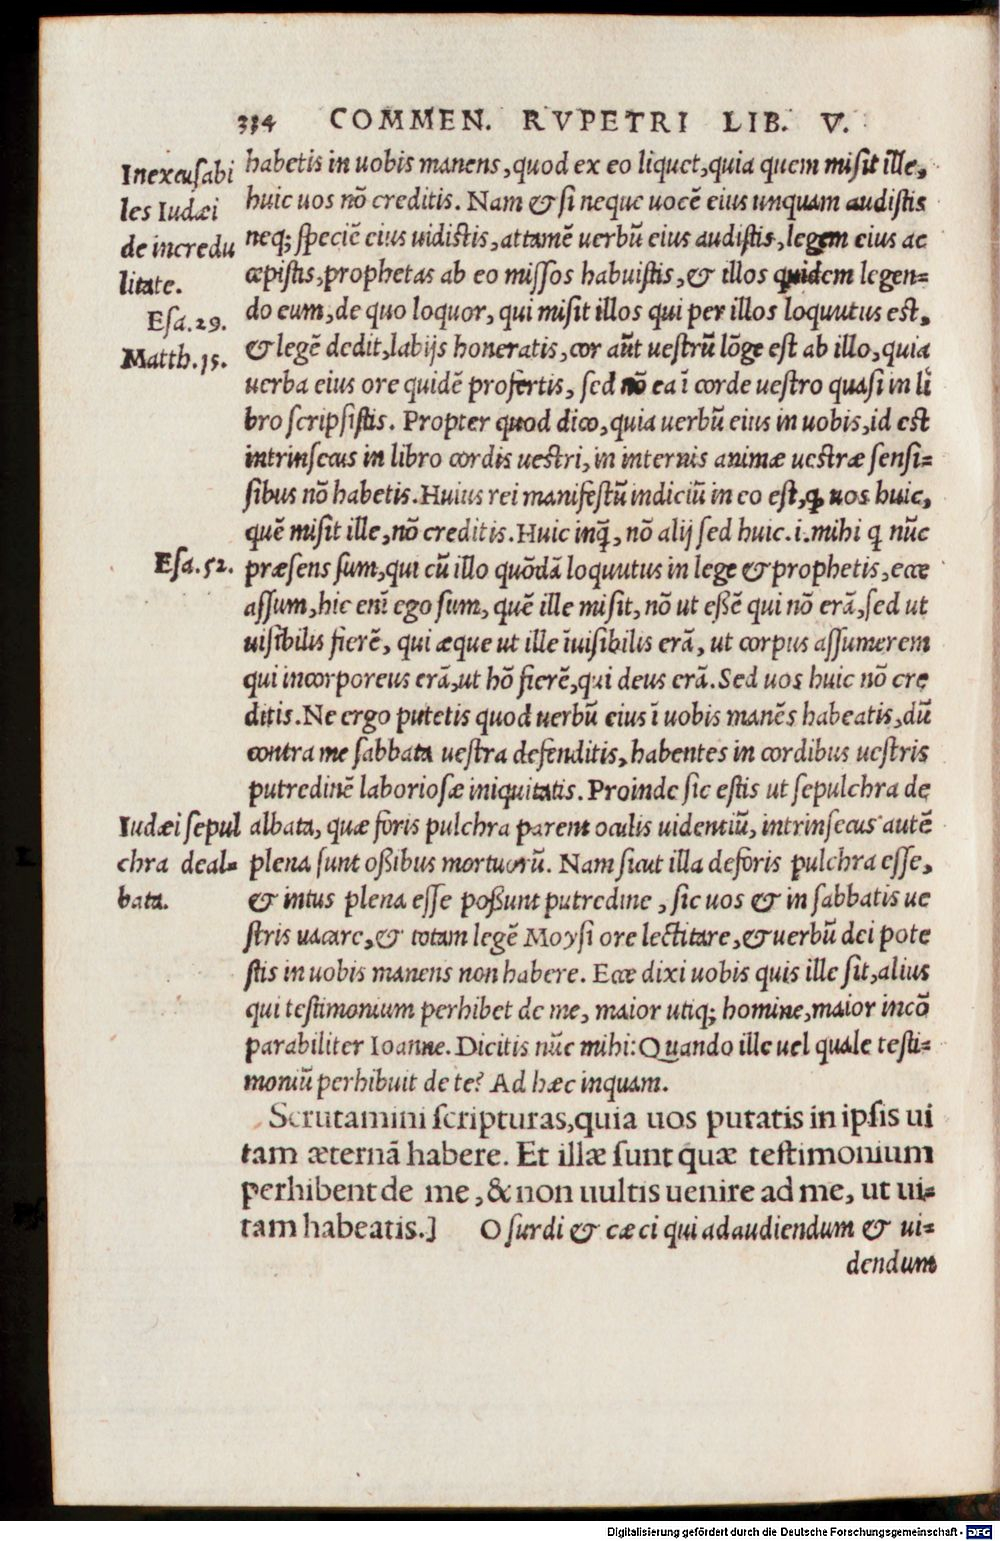 334 COMMEN. RVPETRI LIB. V.
Inexcusabi
les Iudæi
de incredu
litate.
Esa.29.
Matth.15.
habetis in uobis manens, quod ex eo liquet, quia quem misit ille,
huic uos nō creditis. Nam & si neque uocē eius unquam audistis
neq; speciē eius uidistis, attamē uerbū eius audistis, legem eius ac
cæpistis, prophetas ab eo missos habuistis, & illos quidem legen=
do eum, de quo loquor, qui misit illos qui per illos loquutus est,
& legē dedit, labijs honeratis, cor aūt uestrū lōge est ab illo, quia
uerba eius ore quidē profertis, sed nō ea ī corde uestro quasi in li
bro scripsistis. Propter quod dico, quia uerbū eius in uobis, id est
intrinsecus in libro cordis uestri, in internis animæ uestræ sensi=
sibus nō habetis. Huius rei manifestū indiciū in eo est, ꝙ uos huic,
quē misit ille, nō creditis. Huic inq̄, nō alij sed huic .i. mihi q nūc
Esa.52.
præsens sum, qui cū illo quōdā loquutus in lege & prophetis, ecce
assum, hic enī ego sum, quē ille misit, nō ut eßē qui nō erā, sed ut
uisibilis fierē, qui æque ut ille īuisibilis erā, ut corpus assumerem
qui incorporeus erā, ut hō fierē, qui deus erā. Sed uos huic nō cre
ditis. Ne ergo putetis quod uerbū eius ī uobis manēs habeatis, dū
contra me sabbata uestra defenditis, habentes in cordibus uestris
putredinē laboriosæ iniquitatis. Proinde sic estis ut sepulchra de
Iudæi sepul
chra deal=
bata.
albata, quæ foris pulchra parent oculis uidentiū, intrinsecus autē
plena sunt oßibus mortuorū. Nam sicut illa deforis pulchra esse,
& intus plena esse poßunt putredine, sic uos & in sabbatis ue
stris uacare, & totam legē Moysi ore lectitare, & uerbū dei pote
stis in uobis manens non habere. Ecce dixi uobis quis ille sit, alius
qui testimonium perhibet de me, maior utiq; homine, maior incō
parabiliter Ioanne. Dicitis nūc mihi: Quando ille uel quale testi=
moniū perhibuit de te? Ad hæc inquam.
Scrutamini scripturas, quia uos putatis in ipsis ui
tam æternā habere. Et illæ sunt quæ testimonium
perhibent de me, & non uultis uenire ad me, ut ui=
tam habeatis.] O surdi & cæci qui ad audiendum & ui=
dendum
Digitalisierung gefördert durch die Deutsche Forschungsgemeinschaft - DFG